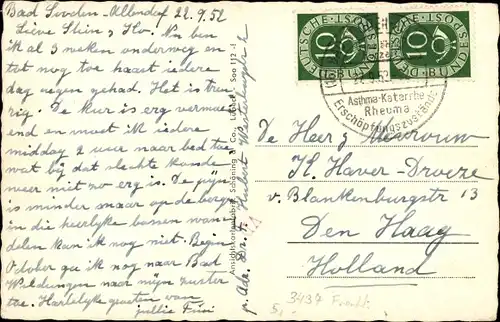 Bad Sooden-Allendorf 22.9.52
Lieve Stien & Ko. Nu ben
ik al 3 weken onderweg en
tot nog toe haast iedere
dag regen gehad. Het is treu-
rig. De kur is erg vermoei
end en moet ik iedere
middag 2 uur naar bed toe
wat bij dat slechte
weer niet zo erg is. De pijn
is minder maar op de bergen
in die heerlyke bossen wan-
delen kan ik nog niet. Begin
October ga ik nog naar Bad
Wildungen naar mijn zuster
toe. Hartelijke groeten van
jullie
p. Adr. Dr. f. Hubert
Ansichtskartenfabrik Schöning & Co., Lübeck Soo 112
DEUTSCHE BUNDESPOST
10
DEUTSCHE BUNDESPOST
10
Asthma-Katarrhe
Rheuma
Erschöpfungszustände
De Heer & Mevrouw
H. Haver-Droeze
v. Blankenburgstr 13
Den Haag
Holland
3437
5,-